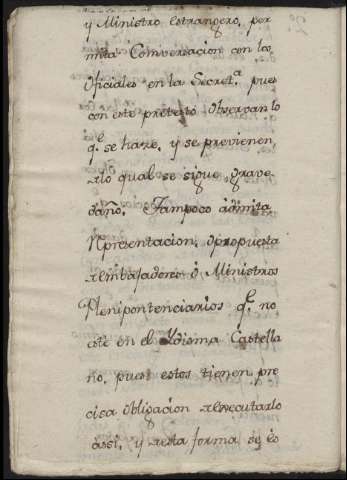 y Ministro estrangero, per
mita Conversacion con los
oficiales en la Secret.ª pues
con este pretesto observan lo
q.e se haze, y se previenen,
de lo qual se sigue grave
daño. Tampoco admita
Representacion, ó propuesta
de embajadores ó Ministros
Plenipontenciarios q.e no
esté en el Ydioma Castella
no, pues estos tienen pre
cisa obligacion de executarlo
assi, y de esta forma se es